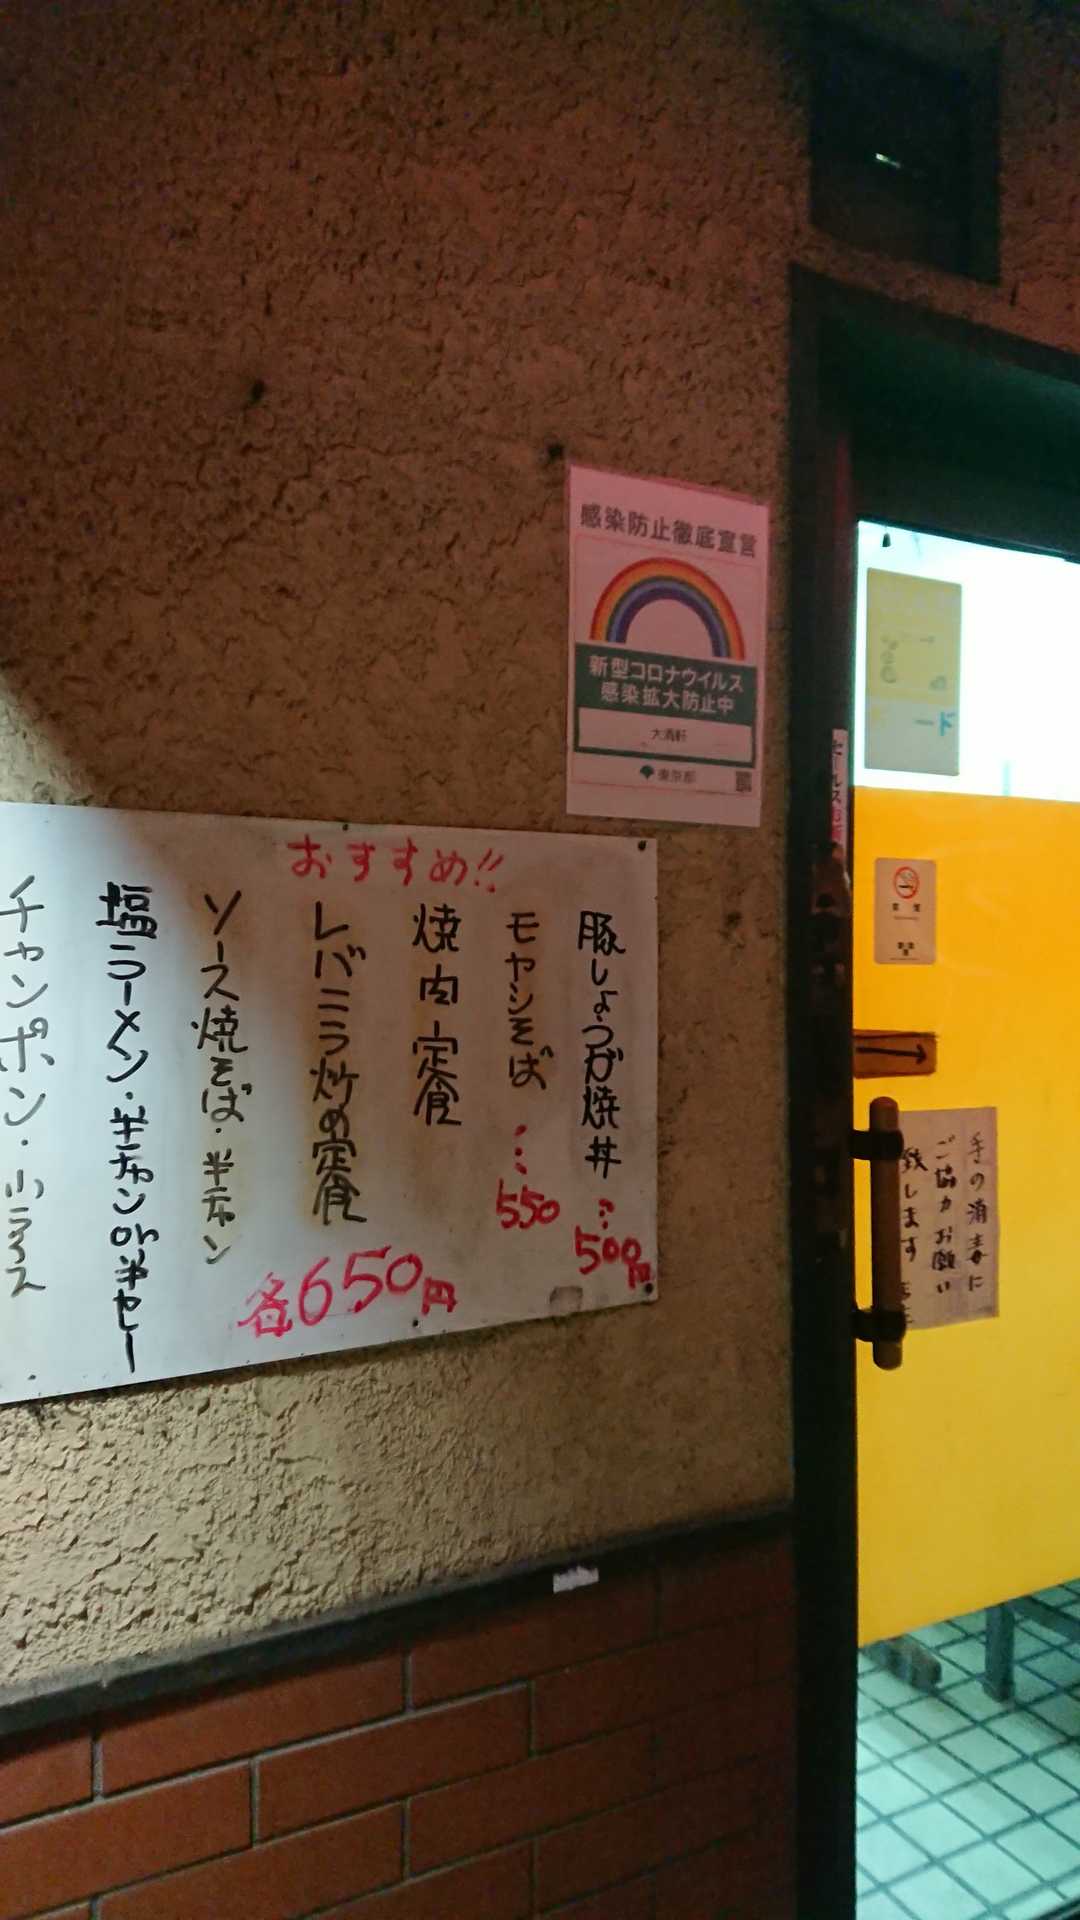 感染防止徹底宣言
新型コロナウイルス
感染拡大防止中
東京都
おすすめ!!
豚しょうが焼丼…500円
モヤシそば…550
焼肉定食
レバニラ炒め定食
ソース焼そば・半チャン
塩ラーメン・半チャンor半カレー
チャンポン・小ライス
各650円
手の消毒に
ご協力お願い
致します